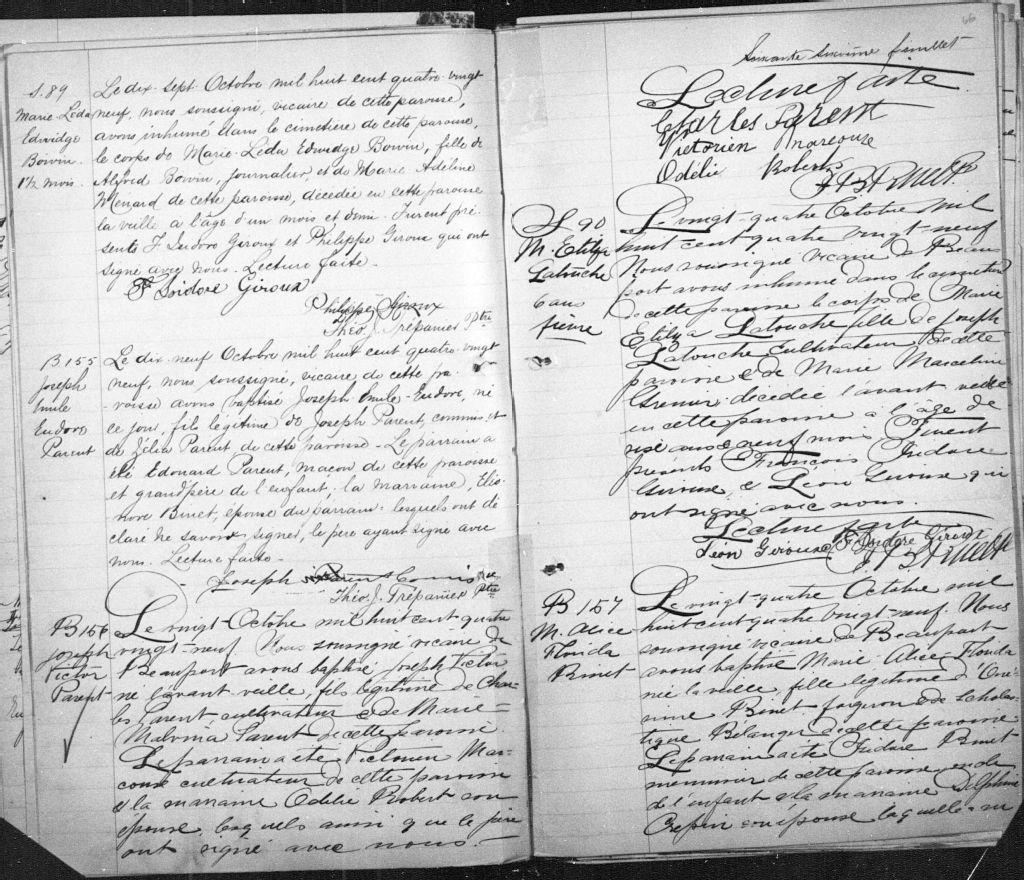 S. 89
Marie-Leda
Edwidge
Boivin
1½ mois.
Le dix-sept Octobre mil huit cent quatre-vingt
neuf, nous soussigné, vicaire de cette paroisse,
avons inhumé dans le cimetière de cette paroisse,
le corps de Marie-Leda Edwidge Boivin, fille de
Alfred Boivin, journalier et de Marie Adéline
Menard de cette paroisse, décédée en cette paroisse
la veille a l'âge d'un mois et demi. Furent pré-
sents F. Isidore Giroux et Philippe Giroux qui ont
signé avec nous. Lecture faite.
F. Isidore Giroux
Philippe Giroux
Théo. J. Trépanier Ptre
B 155
Joseph
Emile
Eudore
Parent
Le dix-neuf Octobre mil huit cent quatre-vingt
neuf, nous soussigné, vicaire de cette pa-
roisse avons baptisé Joseph Emile-Eudore, né
ce jour, fils légitime de Joseph Parent, commis et
de Zélia Parent de cette paroisse. Le parrain a
été Edouard Parent, maçon de cette paroisse
et grandpère de l'enfant; la marraine, Eléo-
nore Binet, épouse du parrain lesquels ont dé-
claré ne savoir signer, le père ayant signé avec
nous. Lecture faite.
Joseph Parent Commis
Théo. J. Trépanier Ptre
B 156
Joseph
Victor
Parent
Le vingt Octobre mil huit cent quatre
vingt-neuf. Nous soussigné vicaire de
Beauport avons baptisé Joseph Victor
né l'avant-veille, fils légitime de Char-
les Parent, cultivateur & de Marie-
Malvina Parent de cette paroisse.
Le parrain a été Victorien Mar-
coux cultivateur de cette paroisse
& la marraine Odélie Robert son
épouse, lesquels ainsi que le père
ont signé avec nous.
66
Soixante sixième feuillet
Lecture faite
Charles Parent
Victorien Marcoux
Odélie Robert
S 90
M. Etilza
Latouche
6 ans
fièvre
Le vingt-quatre Octobre mil
huit cent quatre vingt-neuf
Nous soussigné vicaire de Beau
port avons inhumé dans le cimetière
de cette paroisse le corps de Marie
Etilza Latouche fille de Joseph
Latouche cultivateur de cette
paroisse & de Marie Marceline
Grenier décédée l'avant veille
en cette paroisse a l'âge de
six ans & neuf mois Furent
présents François Isidore
Giroux & Léon Giroux qui
ont signé avec nous.
Lecture faite
Léon Giroux F. Isidore Giroux
B 157
M. Alice
Florida
Binet
Le vingt-quatre Octobre mil
huit cent quatre vingt-neuf. Nous
soussigné vicaire de Beauport
avons baptisé Marie-Alice-Florida
née la veille, fille légitime d'Oné-
sime Binet forgeron & de Scholas-
tique Belanger de cette paroisse
Le parrain a été Isidore Binet
menuisier de cette paroisse oncle
de l'enfant & la marraine Delphine
Crepin son épouse laquelle a su